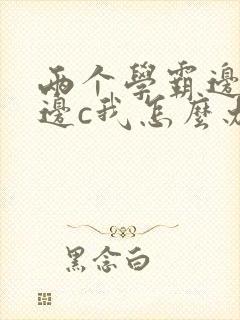 两个學霸邊
邊c我怎麼
黑念白